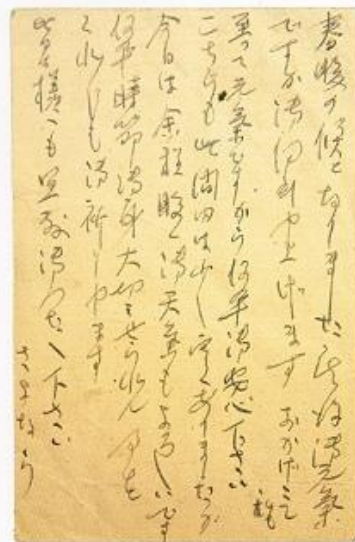 春暖の候となりました 其後御元気
ですか御伺ひ申上げます おかげにて
私も
至って元気ですから何卒御安心下さい
こちらも此間内は少し寒くありましたが
今日は余程暖く御天気もよろしいです
何卒時節御身大切にせられん事を
くれぐれも御祈り申ます
皆々様へも宜敷御伝へ下さい
さよなら